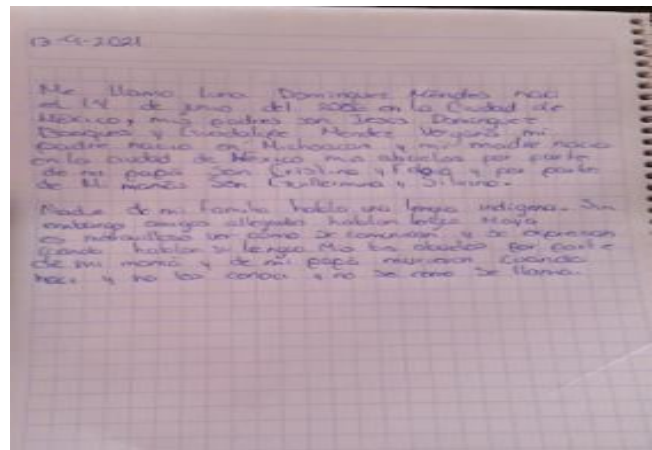 13-9-2021
Me llamo Luna Dominguez Mendes naci
el 14 de junio del en la Ciudad de
México, mis padres son Jesus Dominguez
y Guadalupe Mendez Vergara mi
padre nacio en Michoacan y mi madre nacio
en la ciudad de México mis abuelos por parte
de mi papá son Cristina y y por parte
de Mi mamá son Guillermina y Silvino.
Nadie de mi familia habla una lengua indigena. Sin
embargo amigos allegados hablan lengua Maya
es maravilloso ver como se comunican y se expresan
cuando hablan su lengua Mis abuelos por parte
de mi mamá y de mi papá murieron cuando
naci y no los conoci y no se como se llama.